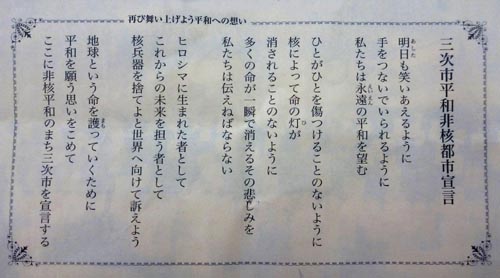 再び舞い上げよう平和への想い
三次市平和非核都市宣言
明日も笑いあえるように
手をつないでいられるように
私たちは永遠の平和を望む
ひとがひとを傷つけることのないように
核によって命の灯が
消されることのないように
多くの命が一瞬で消えるその悲しみを
私たちは伝えねばならない
ヒロシマに生まれた者として
これからの未来を担う者として
核兵器を捨てよと世界へ向けて訴えよう
地球という命を護っていくために
平和を願う思いをこめて
ここに非核平和のまち三次市を宣言する